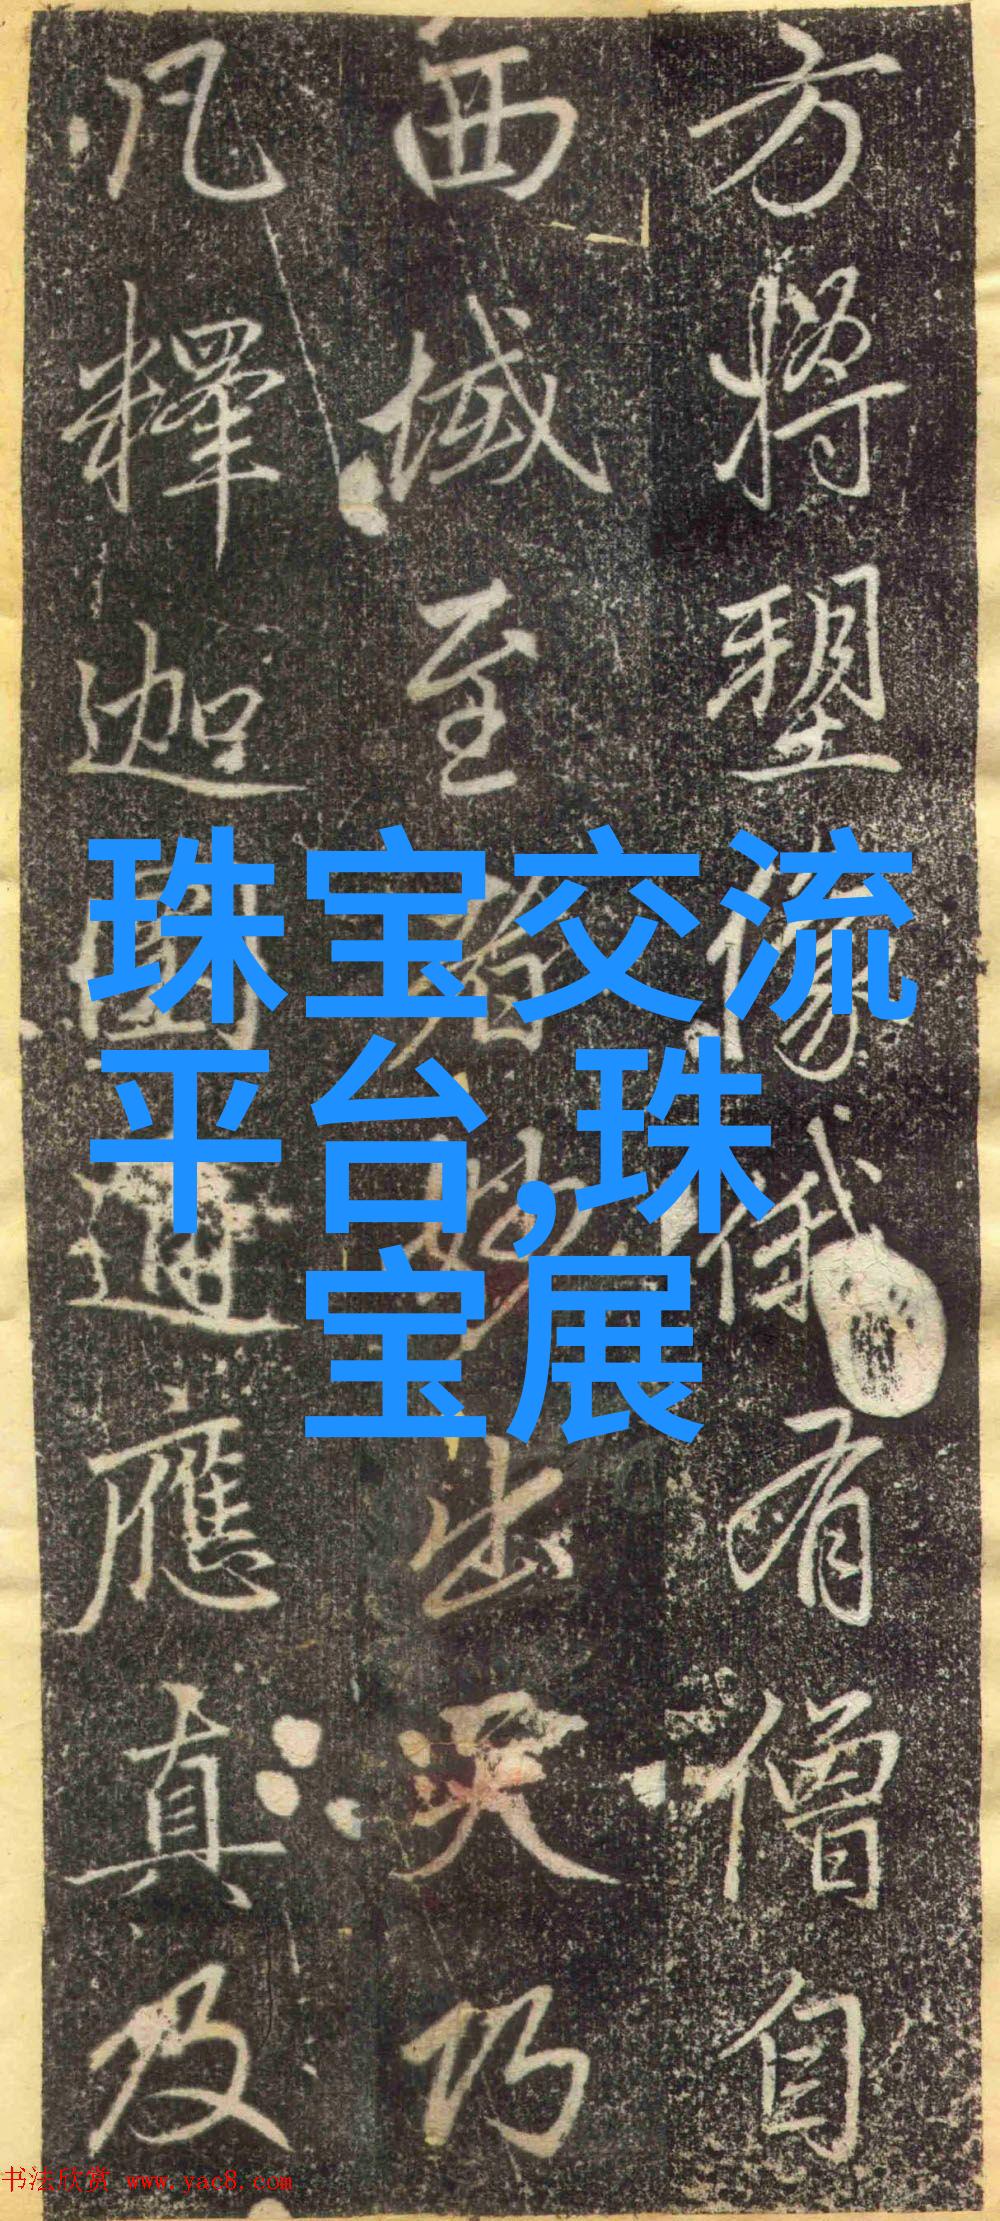 方將塑像俄有僧自
西域至出天乃
凡釋迦應真及
珠宝交流
平台,珠
宝展
书法欣赏 www.yac8.com